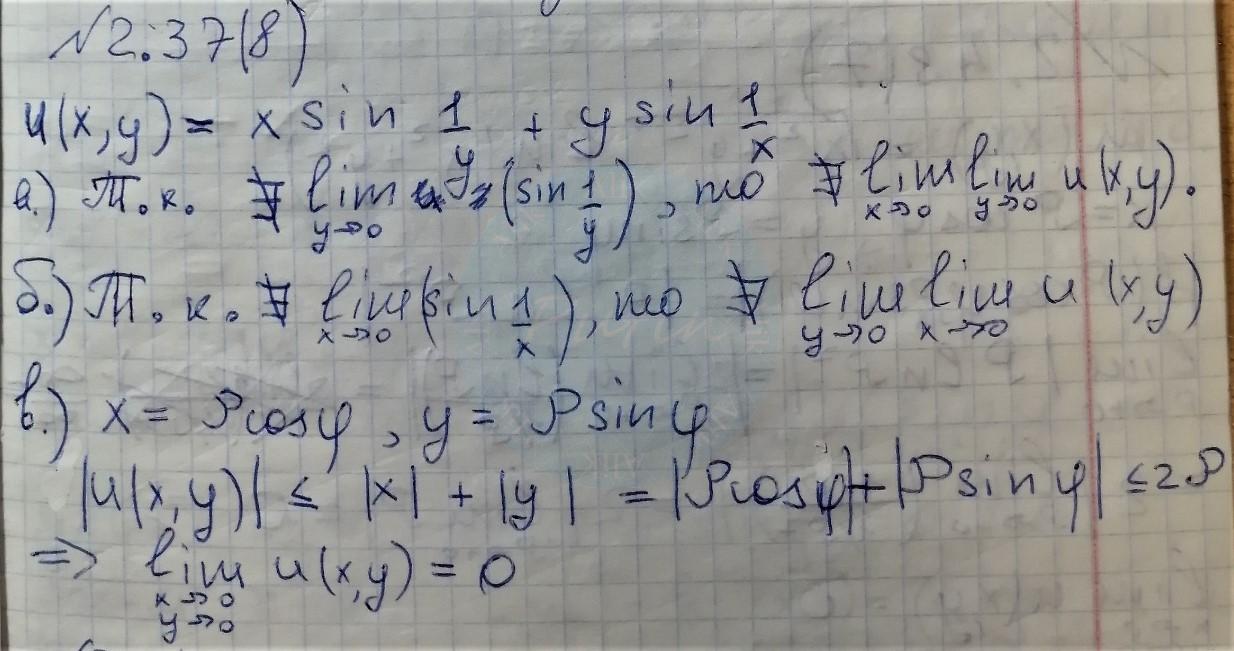 №2.37(8)
u(x,y) = x sin 1/y + y sin 1/x
а.) Т.к. ∄ lim y→0 (sin 1/y), то ∄ lim x→0 lim y→0 u(x,y).
б.) Т.к. ∄ lim x→0 (sin 1/x), то ∄ lim y→0 lim x→0 u(x,y)
в.) x = ρcosφ, y = ρsinφ
|u(x,y)| ≤ |x| + |y| = |ρcosφ| + |ρsinφ| ≤ 2ρ
=> lim x→0 y→0 u(x,y) = 0